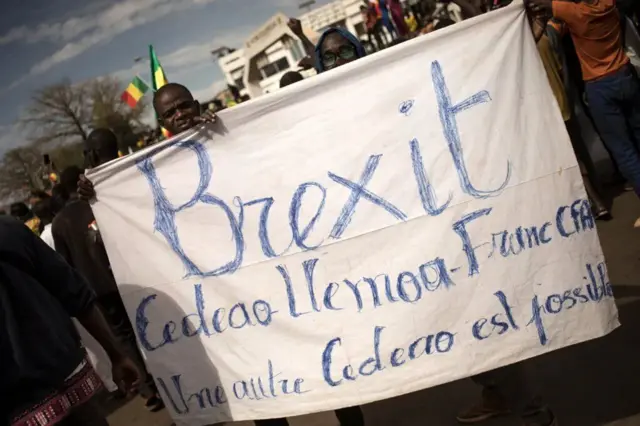 Brexit
Cedeao Uemoa-Franc CFA
Une autre Cedeao est possible